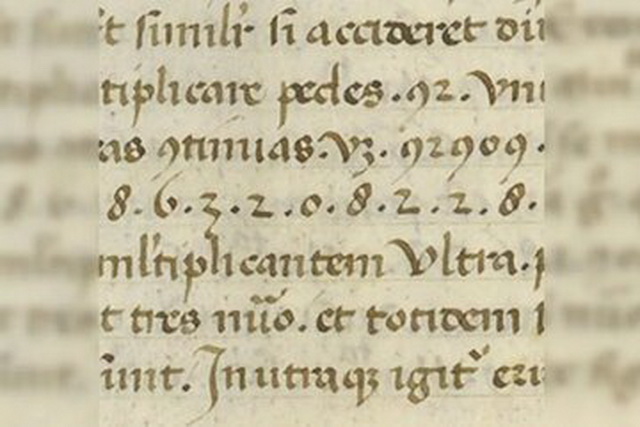 t similr si accideret
tiplicare pedes .92. Vn
as 9tinuas. Vz. 92909.
8. 6. 3. 2. 0. 8. 2. 2. 8.
ml'tiplicantem Vltra. p
t tres nu̅o. et totidem
unt. In utraqz igit'